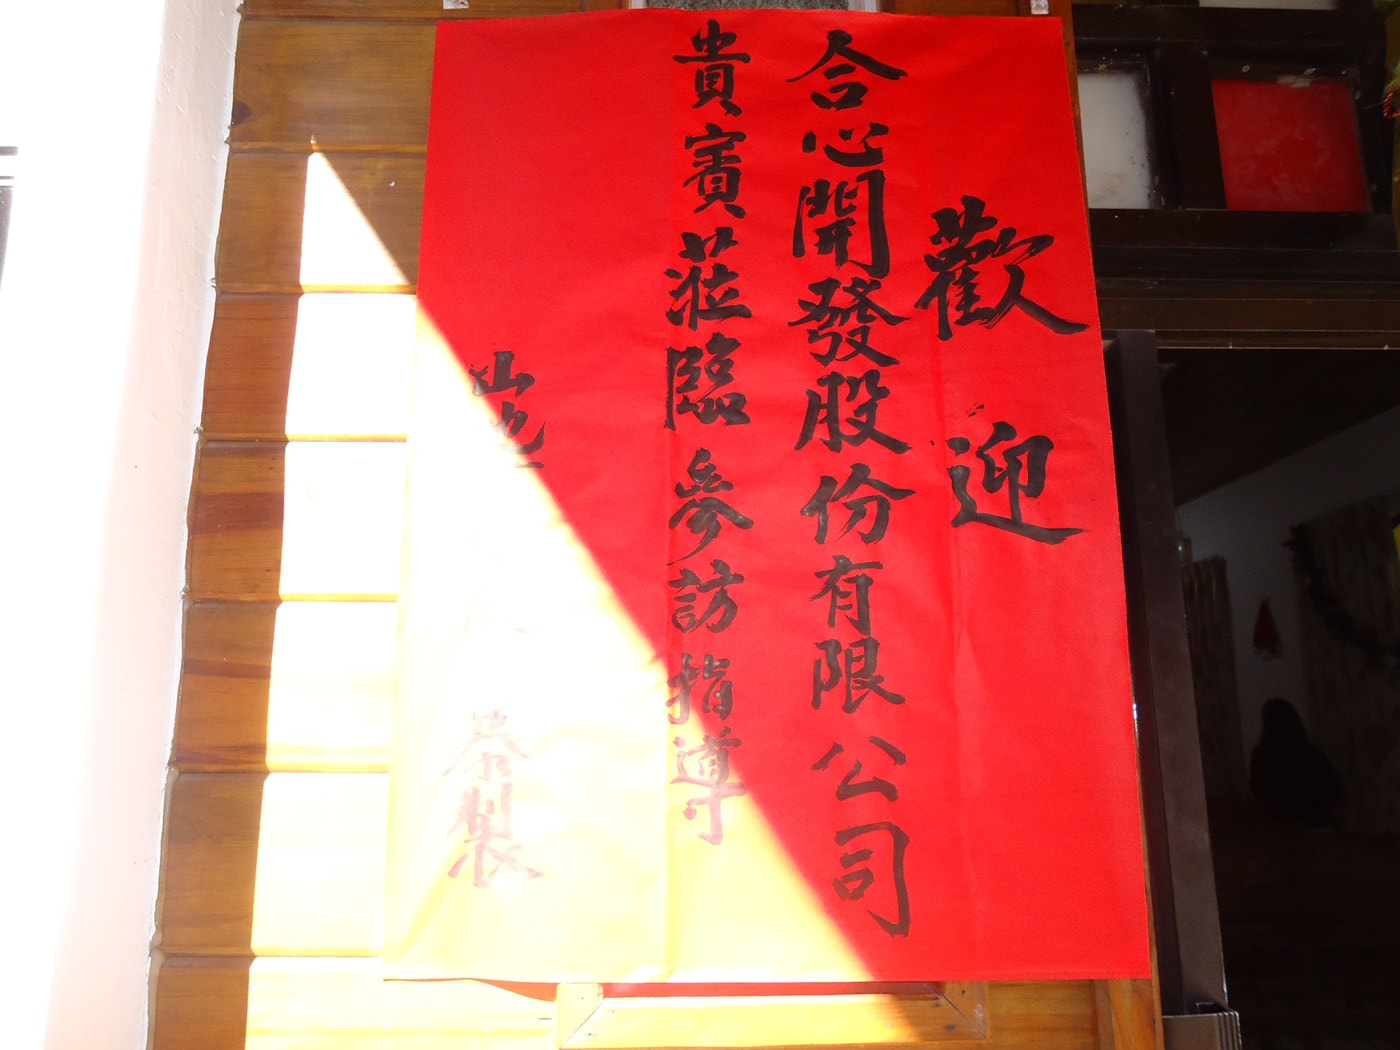 歡迎
合心開發股份有限公司
貴賓蒞臨參訪指導
恭製